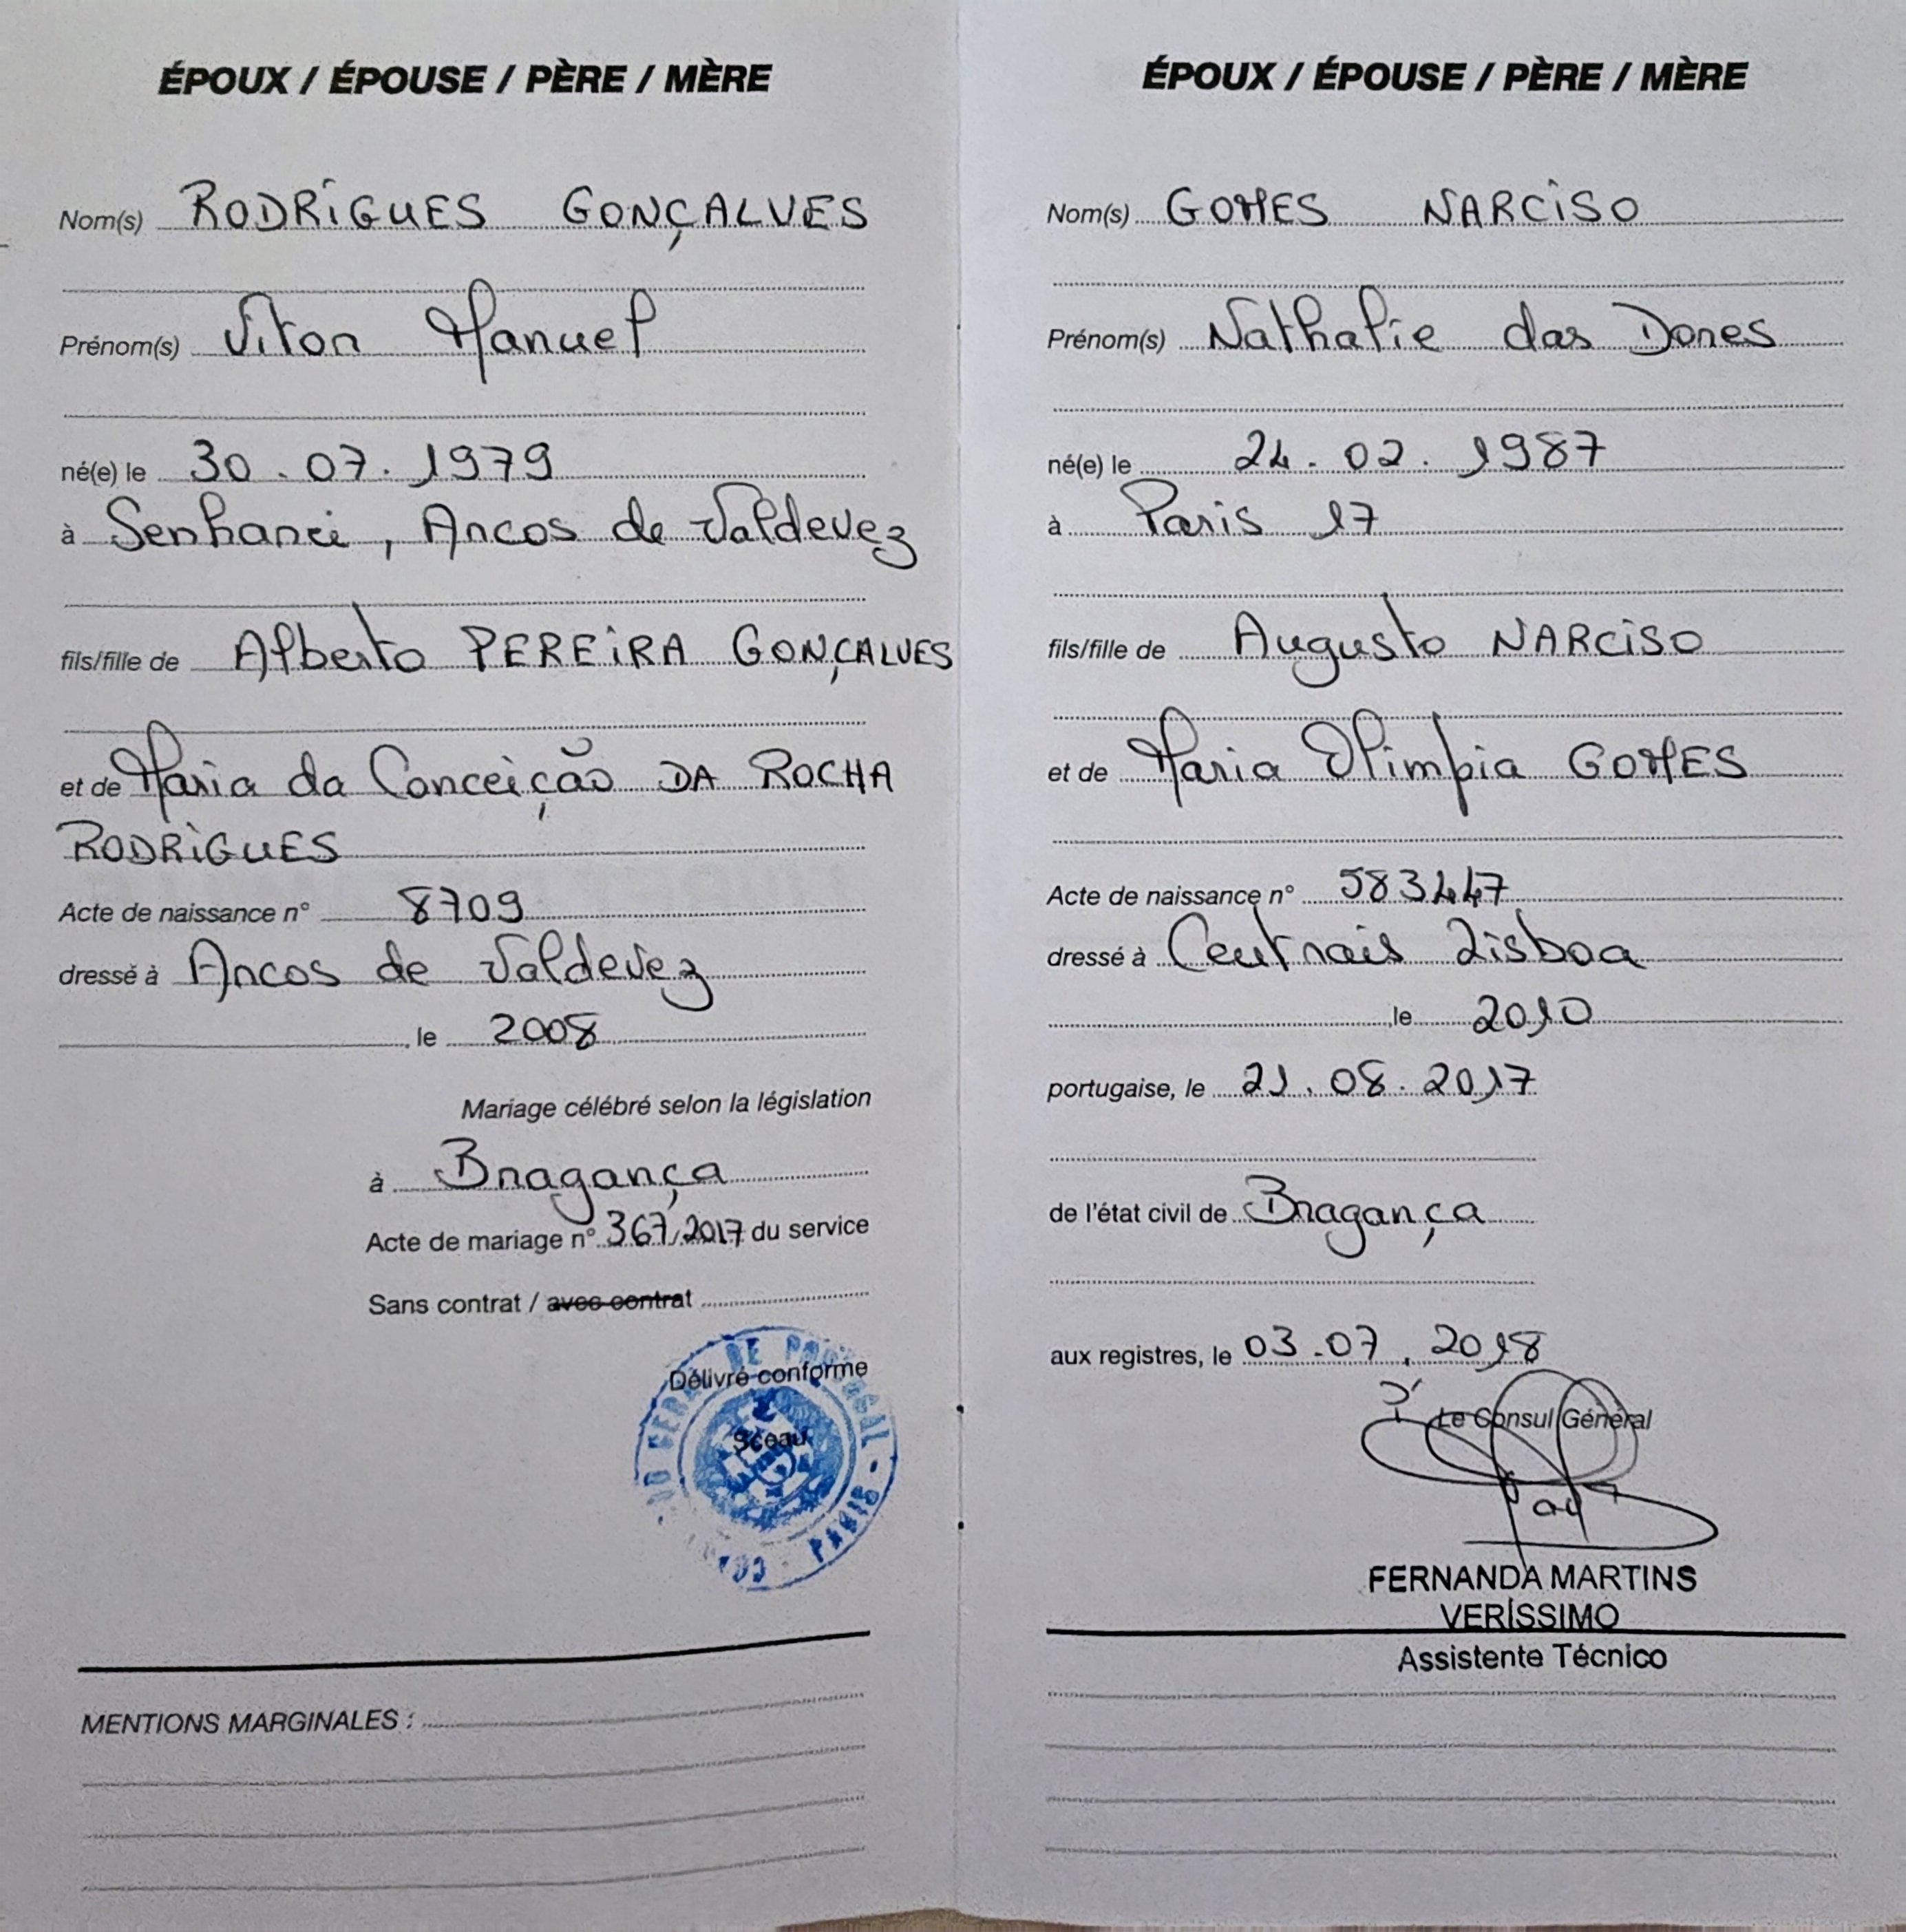 ÉPOUX / ÉPOUSE / PÈRE / MÈRE
Nom(s) RODRIGUES GONÇALVES
Prénom(s) Vitor Manuel
né(e) le 30.07.1979
à Senharei, Arcos de Valdevez
fils/fille de Alberto PEREIRA GONÇALVES
et de Maria da Conceição DA ROCHA
RODRIGUES
Acte de naissance n° 8709
dressé à Arcos de Valdevez
, le 2008
Mariage célébré selon la législation
à Bragança
Acte de mariage n° 367/2017 du service
Sans contrat / avec contrat
Délivré conforme
Sceau
DE PORTUGAL - PARIS
MENTIONS MARGINALES :
ÉPOUX / ÉPOUSE / PÈRE / MÈRE
Nom(s) GOMES NARCISO
Prénom(s) Nathalie das Dores
né(e) le 24.02.1987
à Paris 17
fils/fille de Augusto NARCISO
et de Maria Olimpia GOMES
Acte de naissance n° 583447
dressé à Centrais Lisboa
, le 2010
portugaise, le 21.08.2017
de l'état civil de Bragança
aux registres, le 03.07.2018
Le Consul Général
FERNANDA MARTINS
VERÍSSIMO
Assistente Técnico